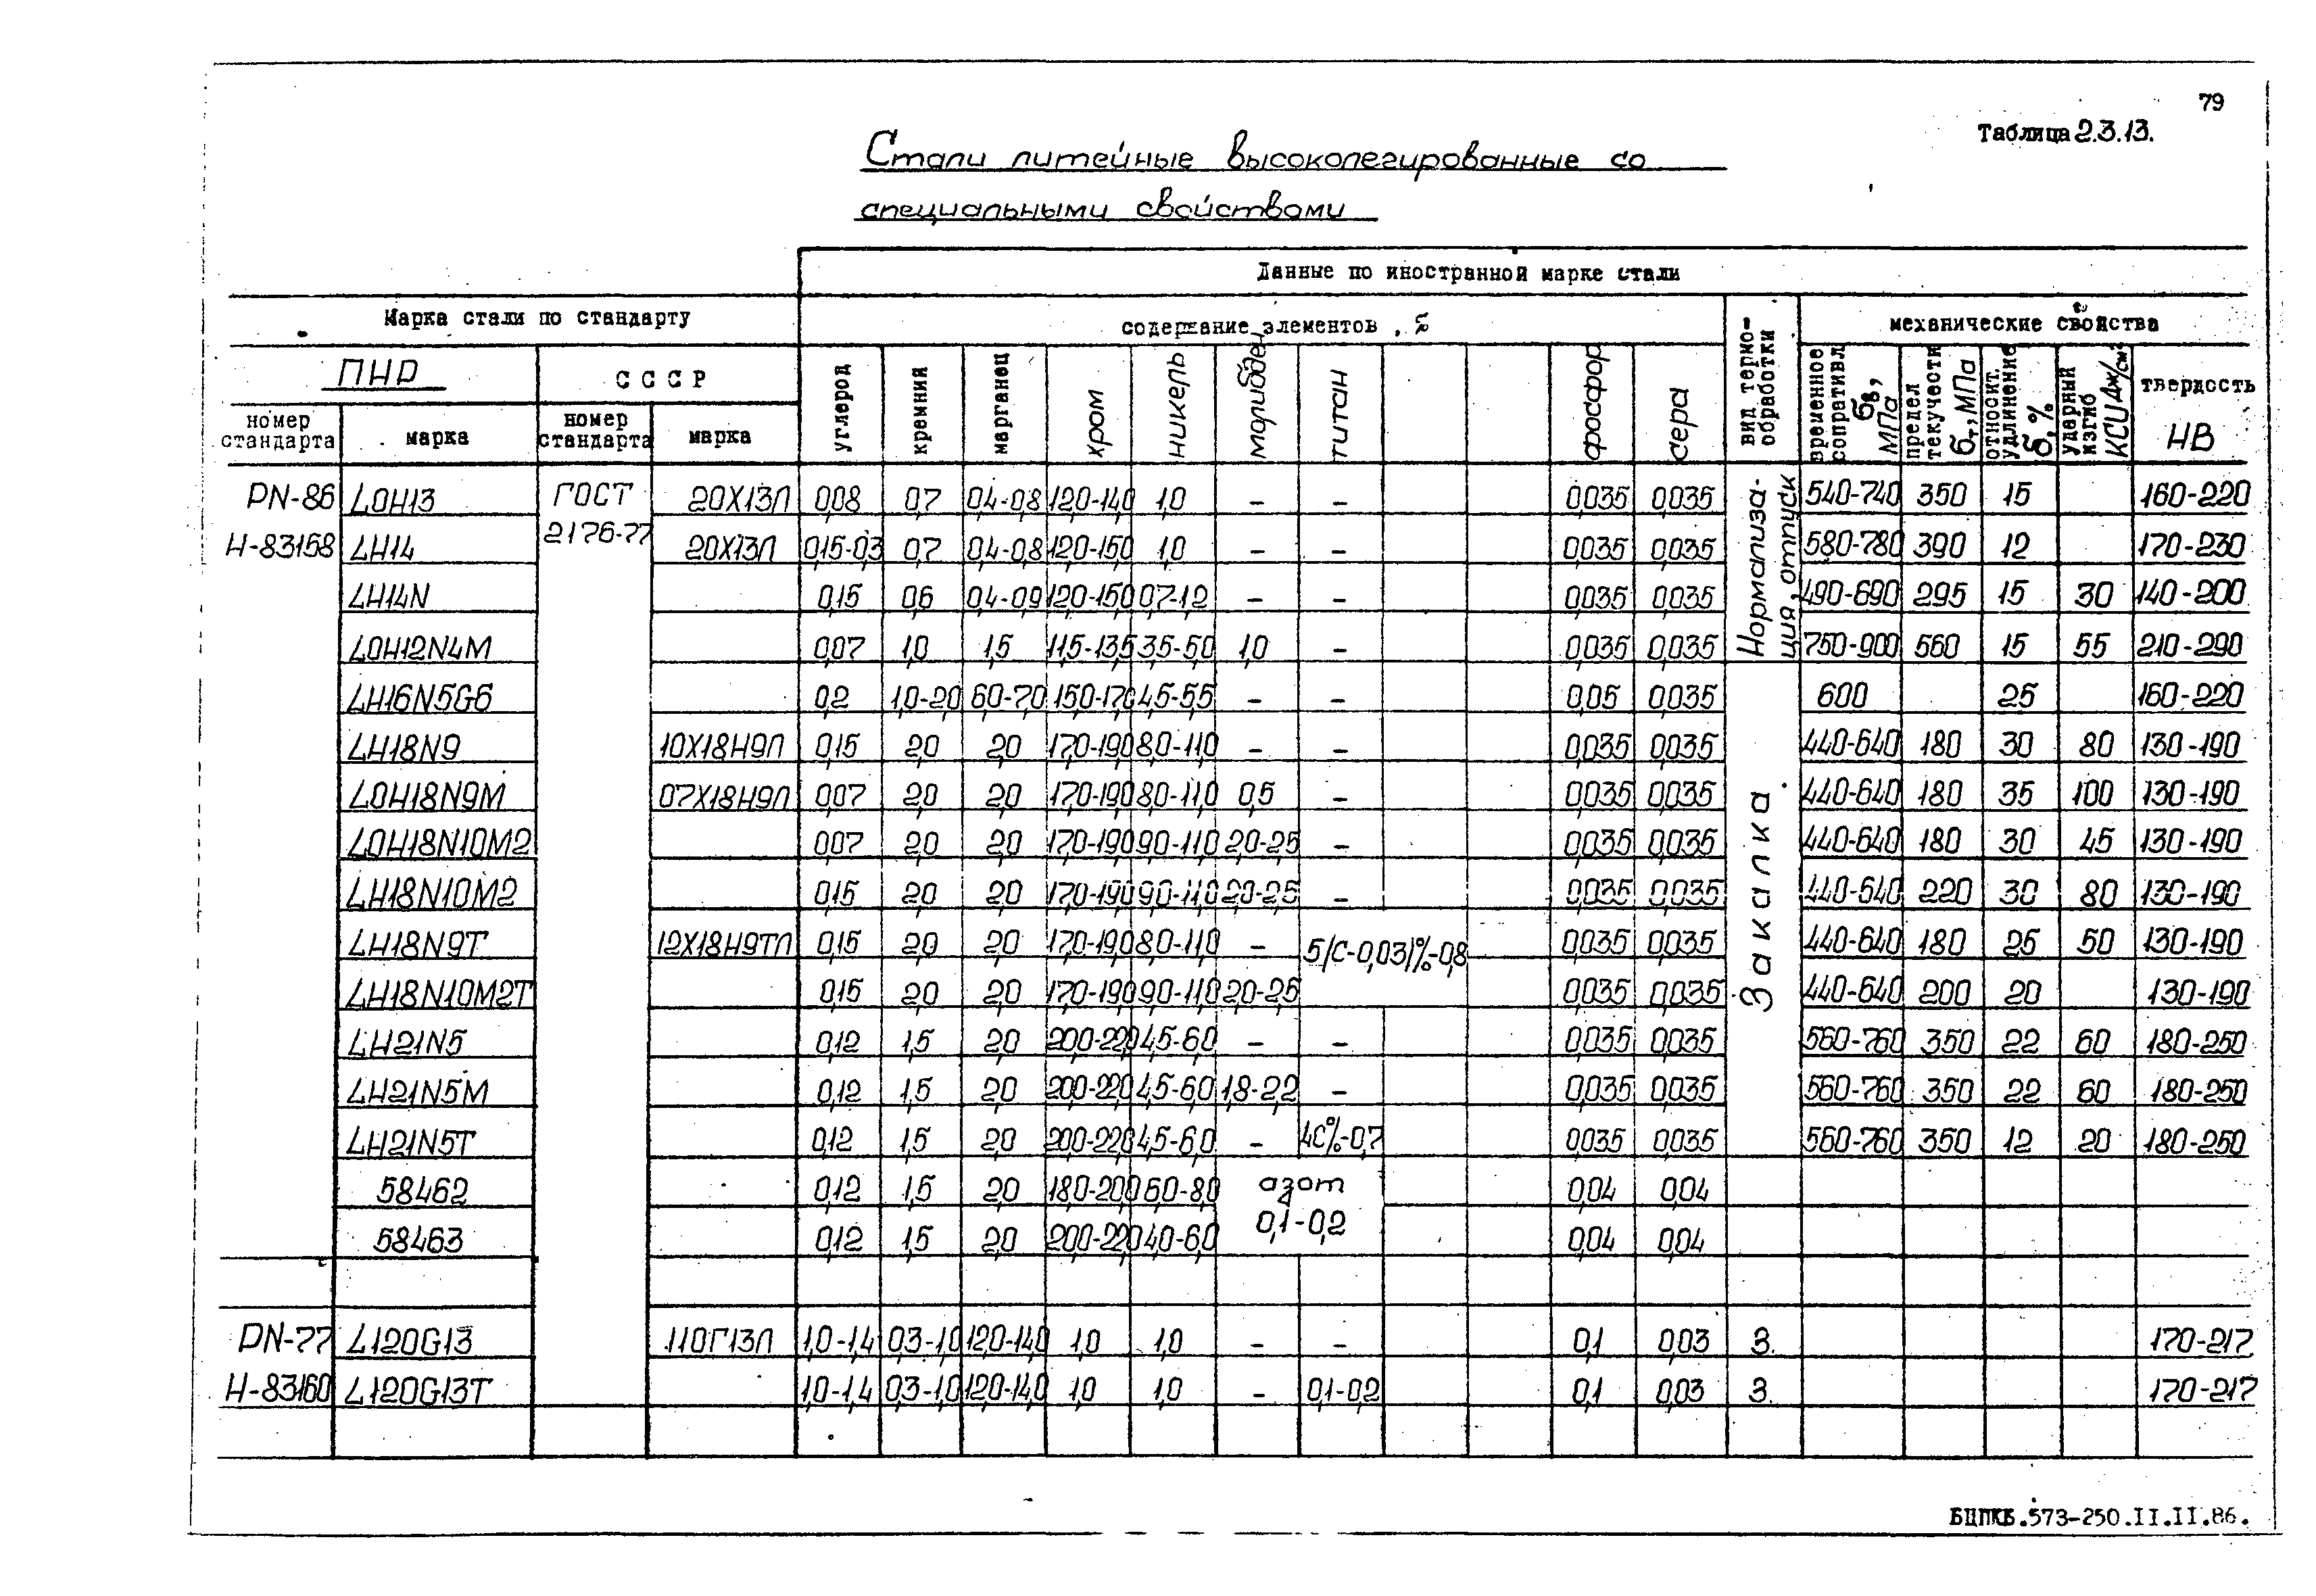 79
Таблица 2.3.13.
Стали литейные высоколегированные со
специальными свойствами
Данные по иностранной марке стали
Марка стали по стандарту
содержание элементов, %
вид термо-
обработки
механические свойства
ПНР
СССР
углерод
кремний
марганец
хром
никель
молибден
титан
фосфор
сера
временное сопротивл. бв, МПа
предел текучести бт, МПа
относит. удлинение б, %
ударный изгиб KCU Дж/см²
твердость НВ
номер стандарта
марка
номер стандарта
марка
PN-86 LOH13 ГОСТ 20Х13Л 0,08 0,7 0,4-0,8 12,0-14,0 1,0 – – 0,035 0,035 540-740 350 15 160-220
H-83158 LH14 2176-77 20Х13Л 0,15-0,3 0,7 0,4-0,8 12,0-15,0 1,0 – – 0,035 0,035 580-780 390 12 170-230
LH14N 0,15 0,6 0,4-0,9 12,0-15,0 0,7-1,2 – – 0,035 0,035 490-690 295 15 30 140-200
LOH12N4M 0,07 1,0 1,5 11,5-13,5 3,5-5,0 1,0 – 0,035 0,035 750-900 560 15 55 210-290
Нормализа-
ция, отпуск
LH16N5G6 0,2 1,0-2,0 6,0-7,0 15,0-17,0 4,5-5,5 – – 0,05 0,035 600 25 160-220
LH18N9 10Х18Н9Л 0,15 2,0 2,0 17,0-19,0 8,0-11,0 – – 0,035 0,035 440-640 180 30 80 130-190
LOH18N9M 07Х18Н9Л 0,07 2,0 2,0 17,0-19,0 8,0-11,0 0,5 – 0,035 0,035 440-640 180 35 100 130-190
LOH18N10M2 0,07 2,0 2,0 17,0-19,0 9,0-11,0 2,0-2,5 – 0,035 0,035 440-640 180 30 45 130-190
LH18N10M2 0,15 2,0 2,0 17,0-19,0 9,0-11,0 2,0-2,5 – 0,035 0,035 440-640 220 30 80 130-190
LH18N9T 12Х18Н9ТЛ 0,15 2,0 2,0 17,0-19,0 8,0-11,0 – 5/С-0,03/%-0,8 0,035 0,035 440-640 180 25 50 130-190
LH18N10M2T 0,15 2,0 2,0 17,0-19,0 9,0-11,0 2,0-2,5 0,035 0,035 440-640 200 20 130-190
LH21N5 0,12 1,5 2,0 20,0-22,0 4,5-6,0 – – 0,035 0,035 560-760 350 22 60 180-250
LH21N5M 0,12 1,5 2,0 20,0-22,0 4,5-6,0 1,8-2,2 – 0,035 0,035 560-760 350 22 60 180-250
LH21N5T 0,12 1,5 2,0 20,0-22,0 4,5-6,0 – 4С%-0,7 0,035 0,035 560-760 350 12 20 180-250
Закалка
58462 0,12 1,5 2,0 18,0-20,0 6,0-8,0 азот 0,04 0,04
58463 0,12 1,5 2,0 20,0-22,0 4,0-6,0 0,1-0,2 0,04 0,04
PN-77 L120G13 110Г13Л 1,0-1,4 0,3-1,0 12,0-14,0 1,0 1,0 – – 0,1 0,03 З. 170-217
H-83160 L120G13T 1,0-1,4 0,3-1,0 12,0-14,0 1,0 1,0 – 0,1-0,2 0,1 0,03 З. 170-217
БЦПКБ.573-250.II.II.86.